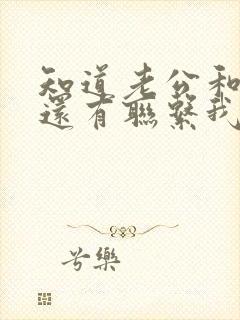 知道老公和
還有聯繫我
兮樂